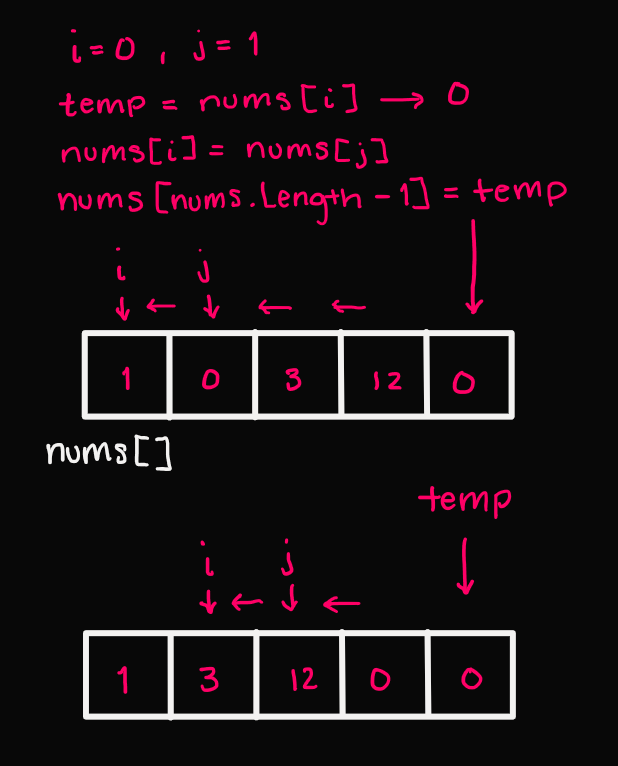 i = 0 , j = 1
temp = nums[i] → 0
nums[i] = nums[j]
nums[nums.Length - 1] = temp
i j
1 0 3 12 0
nums[]
temp
i j
1 3 12 0 0